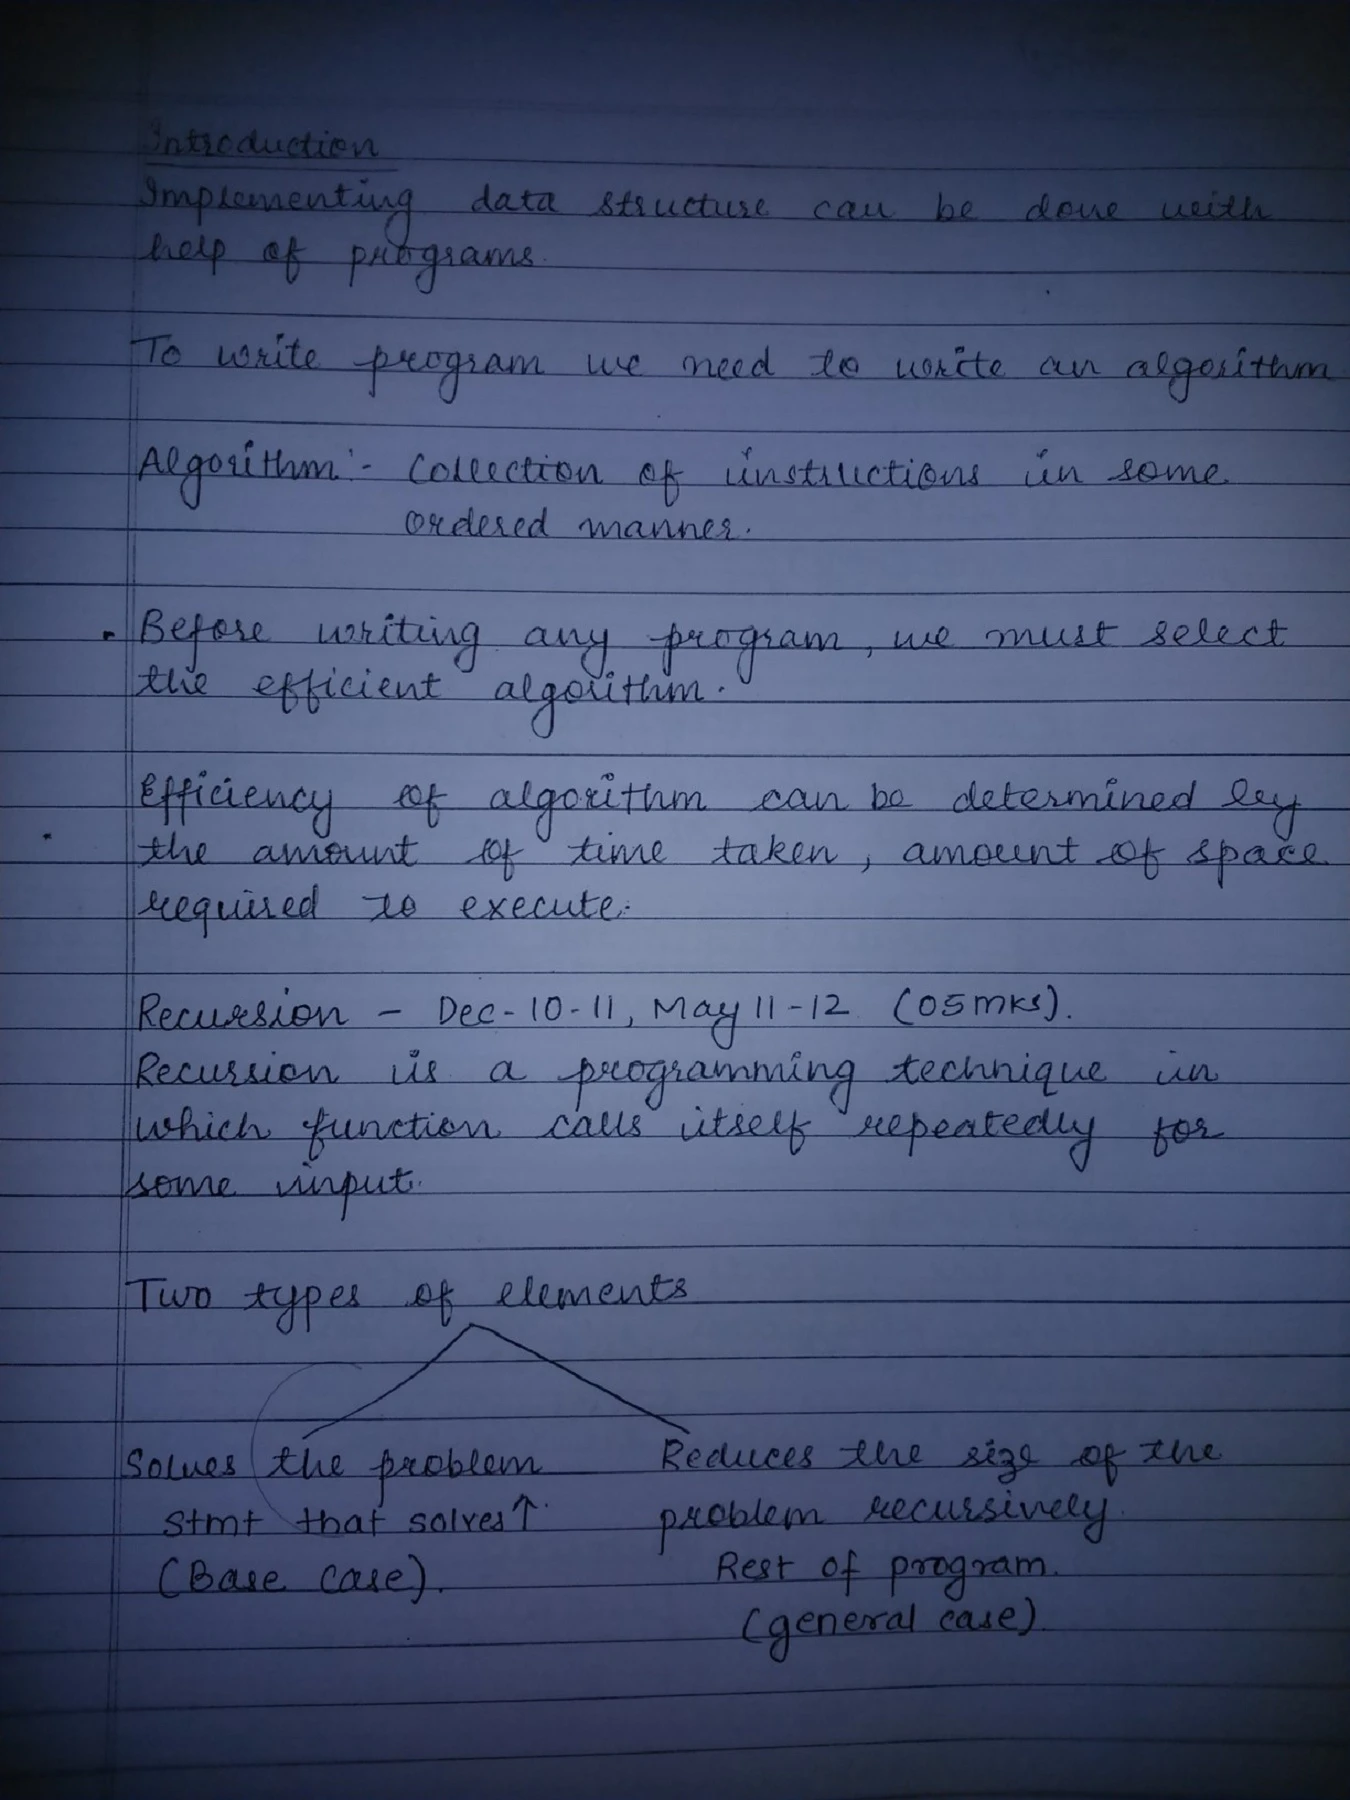 Introduction
Implementing data structure can be done with
help of programs.
To write program we need to write an algorithm
Algorithm :- Collection of instructions in some
ordered manner.
Before writing any program, we must select
the efficient algorithm.
Efficiency of algorithm can be determined by
the amount of time taken, amount of space
required to execute.
Recursion - Dec-10-11, May 11-12 (05 mks).
Recursion is a programming technique in
which function calls itself repeatedly for
some input.
Two types of elements
Solves the problem
stmt that solves ↑.
(Base case).
Reduces the size of the
problem recursively.
Rest of program.
(general case)